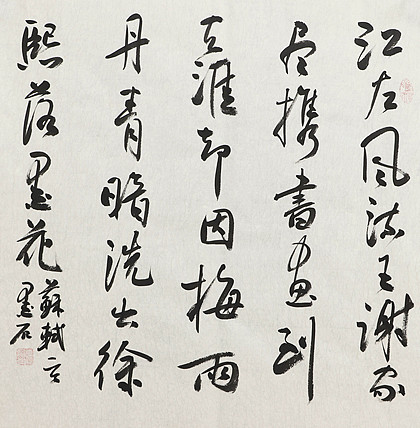 江左风流王謝家
尽携書畫到
天涯却因梅雨
丹青暗洗出徐
熙落墨花
蘇軾
墨石